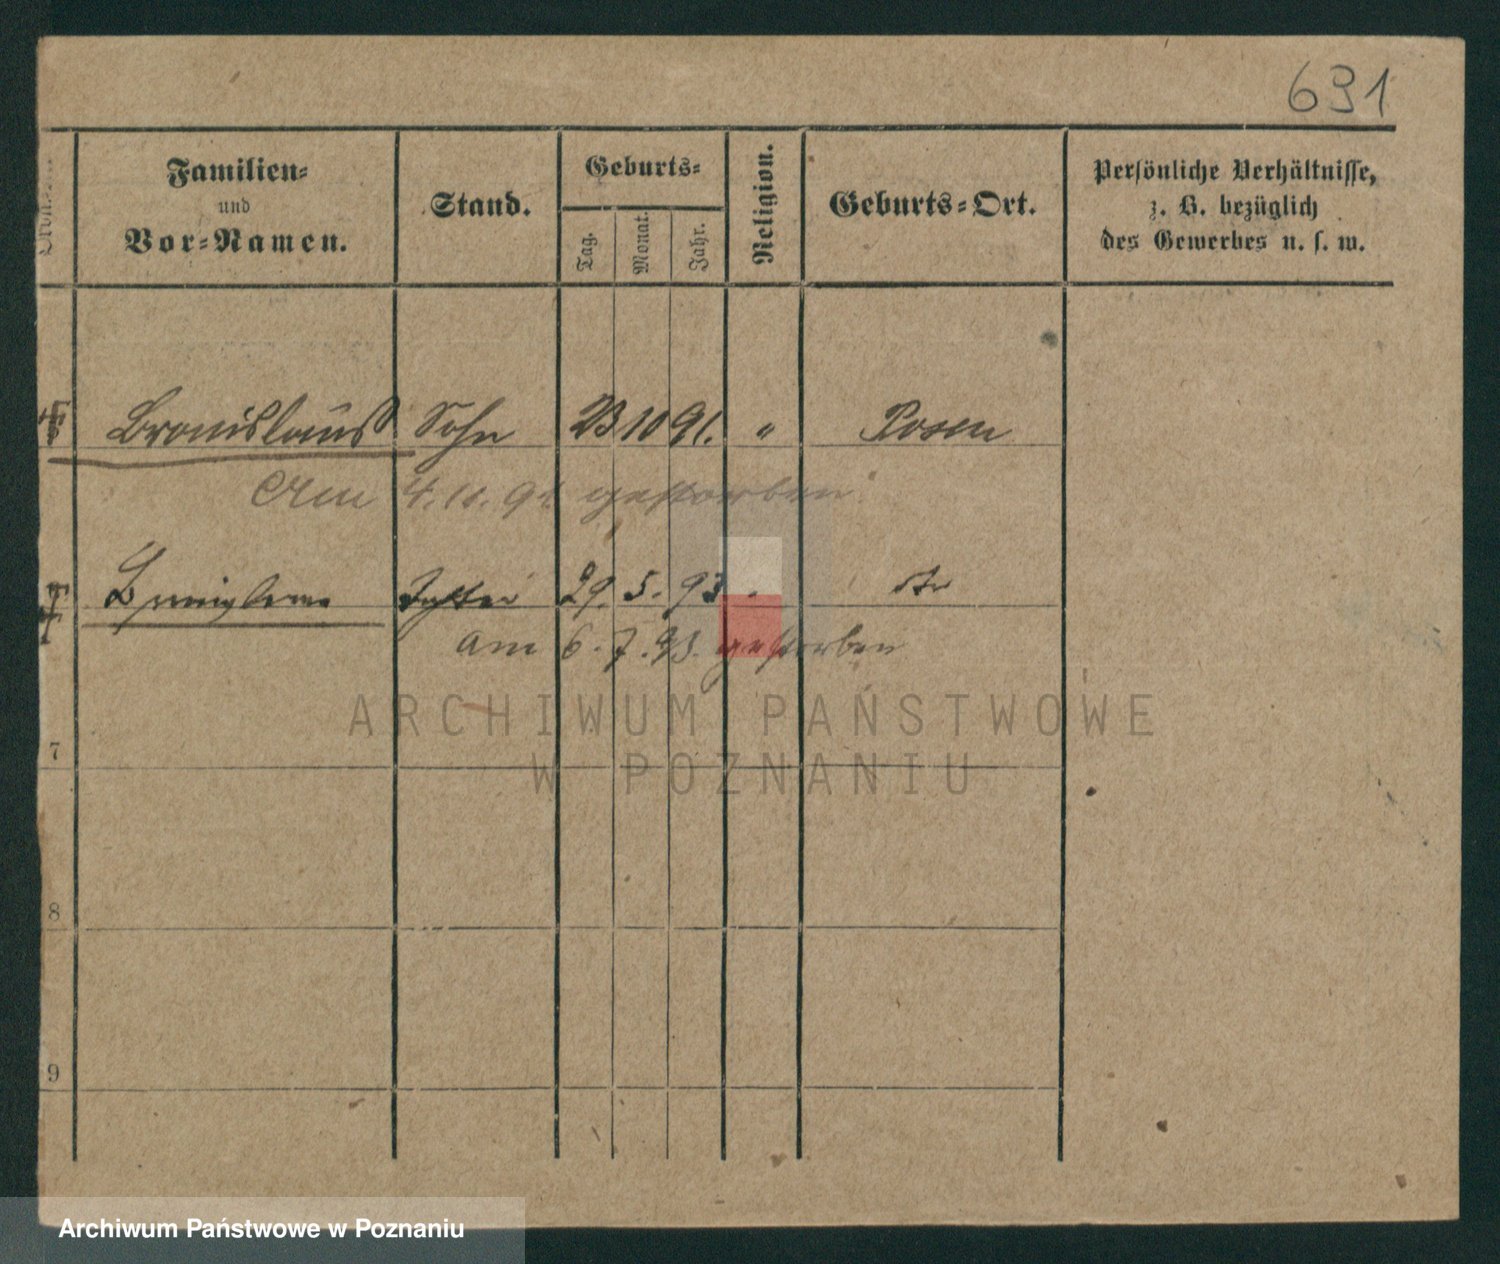 631
Familien-
und
Vor-Namen.
Stand.
Geburts-
Tag.
Monat.
Jahr.
Religion.
Geburts-Ort.
Persönliche Verhältnisse,
z. B. bezüglich
des Gewerbes u. s. w.
Bronislaus Sohn 23 10 91. " Posen
Am 4. 11. 91 gestorben
29. 5. 93
am 6. 7. 93. gestorben
7
8
9
ARCHIWUM PAŃSTWOWE
W POZNANIU
Archiwum Państwowe w Poznaniu